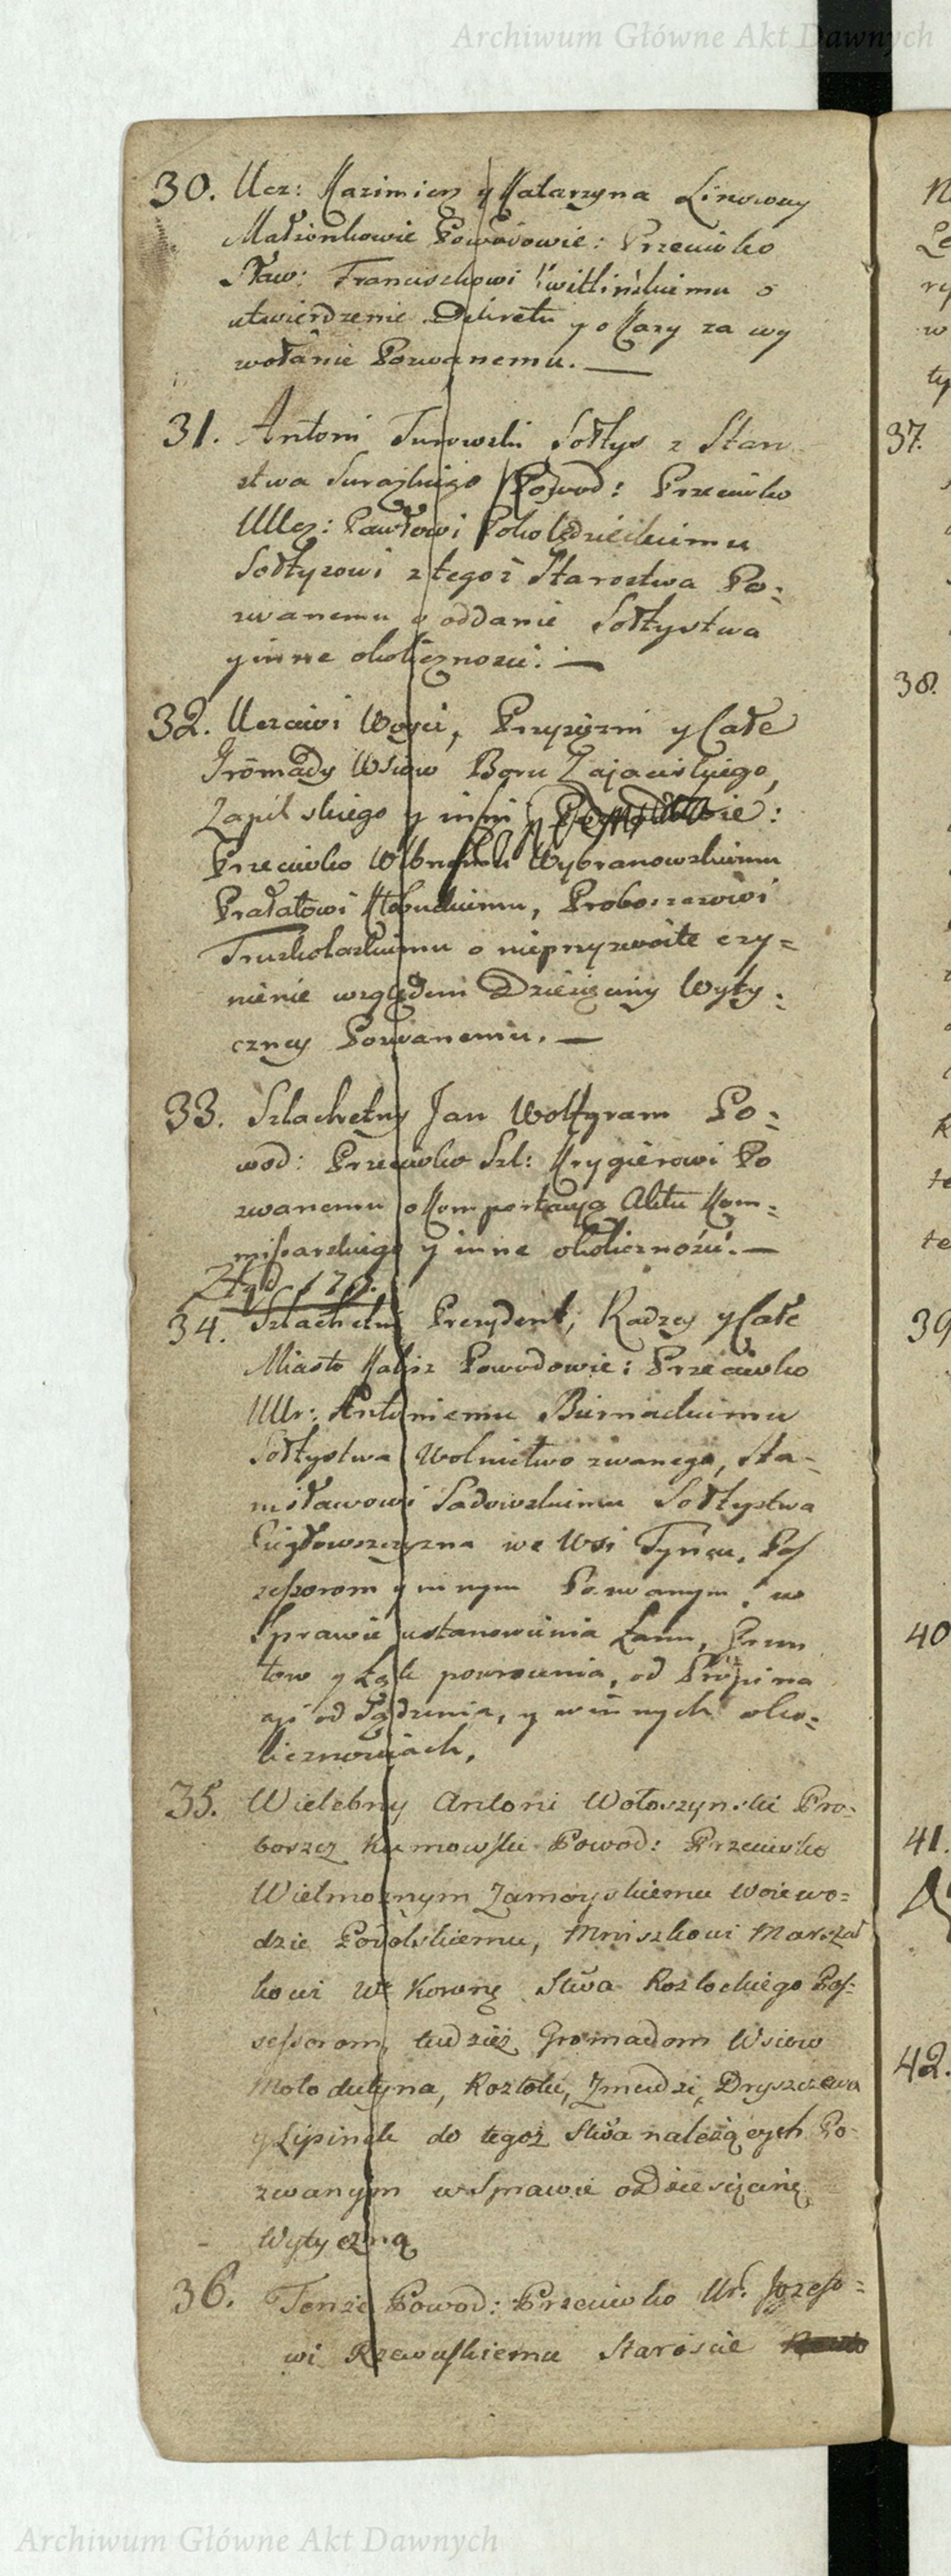 Archiwum Główne Akt Dawnych
30. Ucz: Kazimierz y Katarzyna Linowscy
Małżonkowie Powodowie: Przeciwko
Sław: Franciszkowi Świtlińskiemu o
utwierdzenie Dekretu y o Kary za wy
wołanie Pozwanemu. —
31. Antoni Turowski Sołtys z Staro
stwa Surazkiego Powod: Przeciwko
UUcz: Pawłowi
Sołtysowi z tegoż Starostwa Po:
zwanemu o oddanie Sołtystwa
y inne okoliczności. —
32. Uczciwi Woyci, Przysięzni y Całe
Gromady Wsiow Boru Zajacińskiego,
Zapilskiego y inni Powodowie:
Przeciwko Wybranowskiemu
Prałatowi Kłobuckiemu, Proboszczowi
Truskolaskiemu o nieprzyzwoite czy=
nienie względem Dziesięciny Wyty:
czney Pozwanemu. —
33. Szlachetny Jan Wolfgram Po:
wod: Przeciwko Szl: Krygierowi Po
zwanemu o Komportacyą Aktu Kom:
missarskiego y inne okoliczności. —
34. Szlachetni Prezydent, Radzcy y Całe
Miasto Kalisz Powodowie: Przeciwko
UUr: Antoniemu Biernackiemu
Sołtystwa Wolnictwo zwanego, Sta=
nisławowi Sadowskiemu Sołtystwa
we Wsi Tyńcu, Pos
sessorom y innym Pozwanym: w
Sprawie ustanowienia Łanu, Grun
tow y Łąk powrocenia, od Propina
cyi od Sądzenia, y w innych oko=
licznościach.
35. Wielebny Antoni Wołoszynski Pro=
boszcz Kumowski Powod: Przeciwko
Wielmoznym Zamoyskiemu Woiewo=
dzie Podolskiemu, Mniszkowi Marszał
kowi W Koronę Stwa Rostockiego Pos=
sessorom, tudziez Gromadom Wsiow
Mołodutyna, Roztoki, Zmudzi, Dryszczowa
y Lipinek do tegoż Stwa nalezących Po=
zwanym w Sprawie o Dziesięcinę
Wytyczną
36. Tenze Powod: Przeciwko Ur. Jozefo=
wi Rzewuskiemu Staroscie
37.
38.
39
40
41.
42.
Archiwum Główne Akt Dawnych